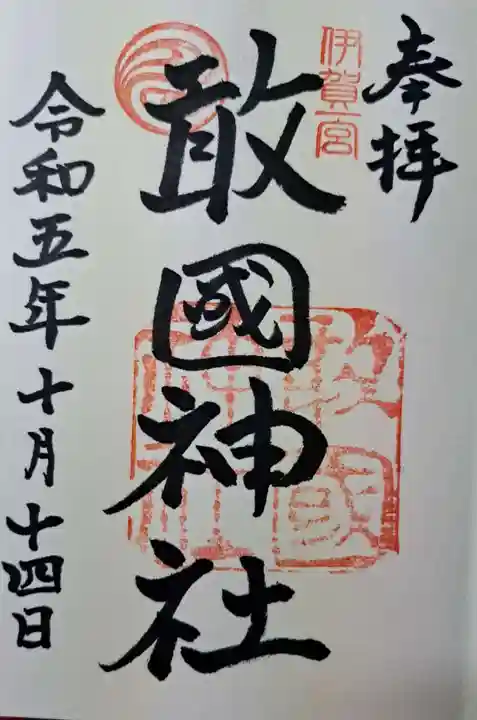 奉拝
伊賀一宮
敢國神社
敢國
神社
令和五年十月十四日